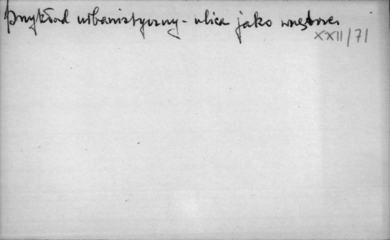 przykład urbanistyczny - ulica jako wnętrze
XXII/71